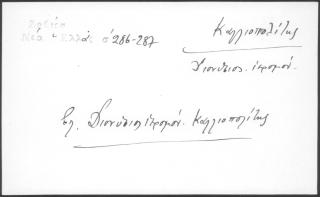 Νέα Ἑλλάς σ 286-287
Καλλιοπολίτης
Διονύσιος ἱερομόν.
Βλ. Διονύσιος ἱερομόν. Καλλιοπολίτης